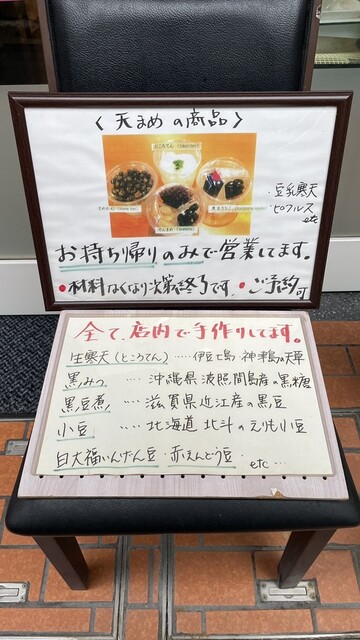 〈 天まめ の商品 〉
ところてん
・豆乳寒天
・ピクルス
etc
お持ち帰りのみで営業してます。
・材料なくなり次第終了です。・ご予約可
全て、店内で手作りしてます。
生寒天(ところてん)……伊豆七島 神津島の天草
黒みつ …… 沖縄県波照間島産の黒糖
黒豆煮 …… 滋賀県近江産の黒豆
小豆 …… 北海道 北斗のえりも小豆
白大福いんげん豆・赤えんどう豆・etc…